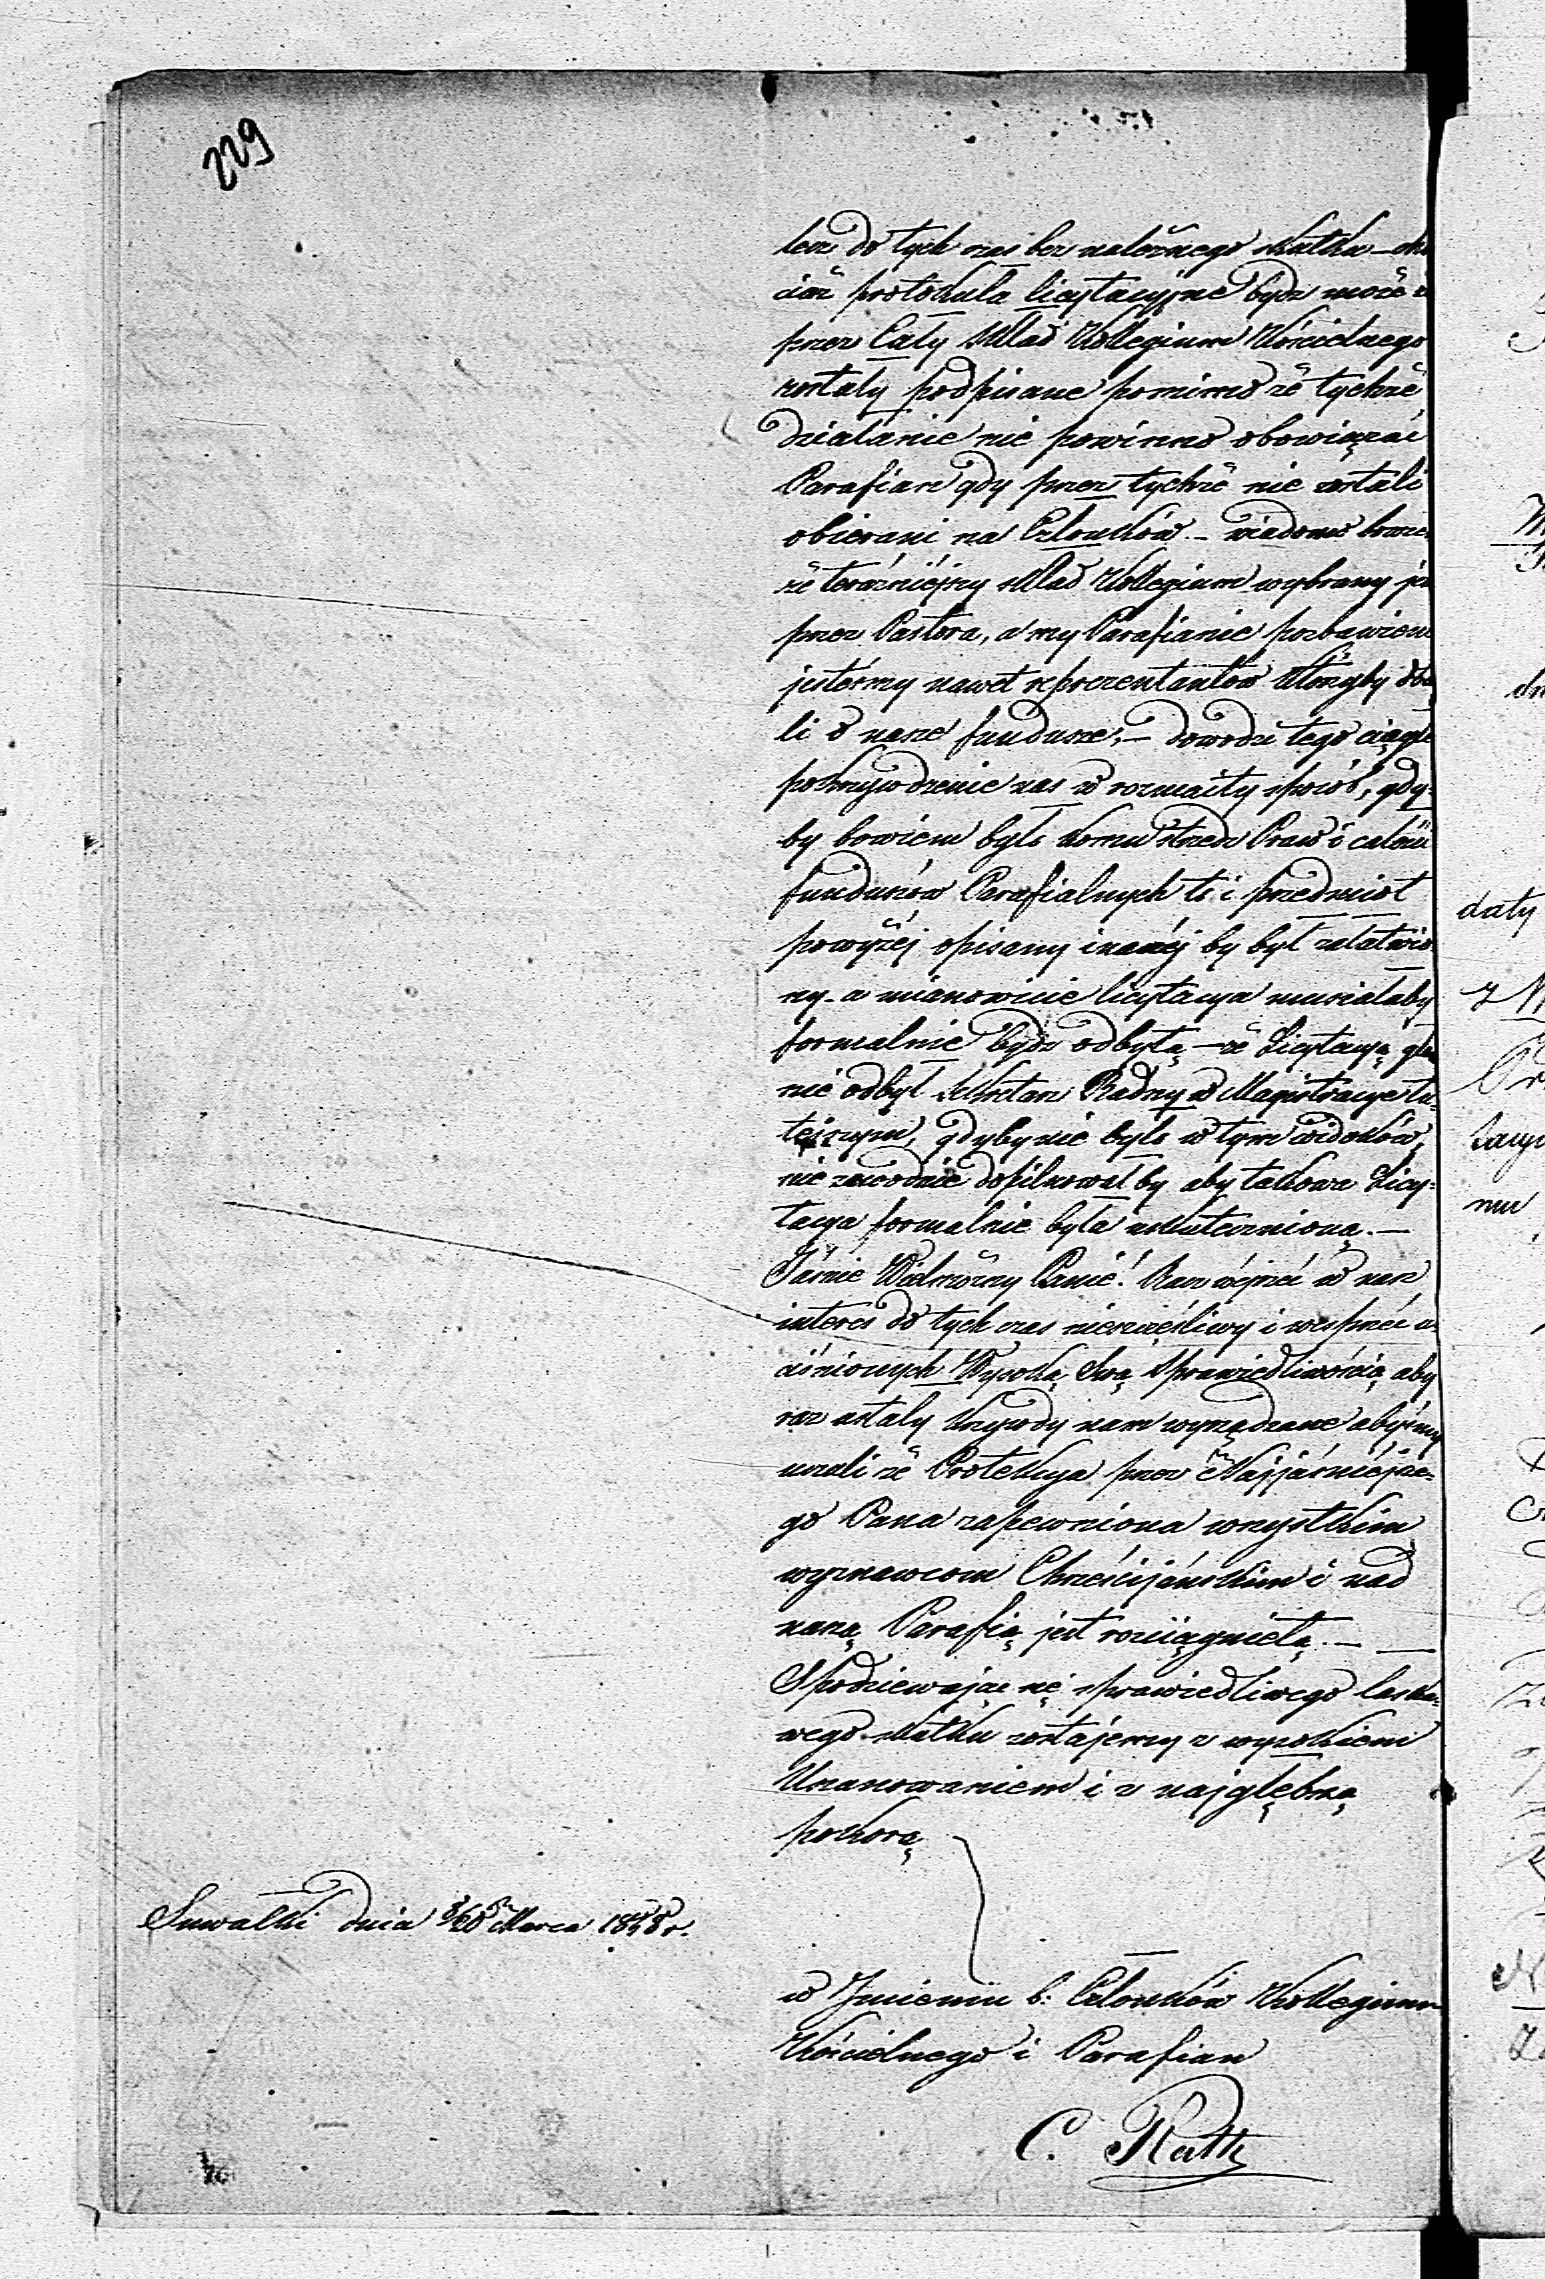 229
lecz do tych czas bez należnego skutku – cho
ciaż protokuła licytacyjne bydz może i
przez Cały skład Kollegium Kościelnego
zostały podpisane pomimo że tychże
działanie nie powinno obowiązać
Parafian gdy przez tychże nie zostali
obierani na Członków. – wiadomo bowie
że teraźniéjszy skład Kollegium wybrany je
przez Pastora, a my Parafianie pozbawieni
jesteśmy nawet reprezentantów którzyby dba
li o nasze fundusze, – dowodzi tego ciągłe
pokrzywdzenie nas w rozmaity sposób, gdy-
by bowiem było komu strzedz Praw i całości
funduszów Parafialnych to i przedmiot
powyżéj opisany inaczéj by był załatwio
ny – a mianowicie licytacya musiałaby
formalnie bydz odbytą – że Licytacyą
nie odbył Sekretarz Radny w Magistracye tu-
tejszym, gdyby nie było w tym widoków,
niezawodnie dopilnował by aby takowa Licy-
tacya formalnie była uskutecznioną. –
Jaśnie Wielmożny Panie! Racz wejrzéć w nasz
interes do tych czas nieszczęśliwy i wesprzéć u-
ciśnionych Wysoką Swą Sprawiedliwością aby
raz ustały krzywdy nam wyrządzane abyśmy
uznali że Protekcya przez Najjaśniéjsze-
go Pana zapewniona wszystkim
wyznawcom Chrześcijańskim i nad
naszą Parafią jest rozciągniętą. –
Spodziewając się sprawiedliwego łaska-
wego skutku zostajemy z wysokiem
Uszanowaniem i z najgłębszą
pokorą
Suwałki dnia 8/20 Marca 1858 r.
w Imieniu b: Członków Kollegium
Kościelnego i Parafian
C. Rath